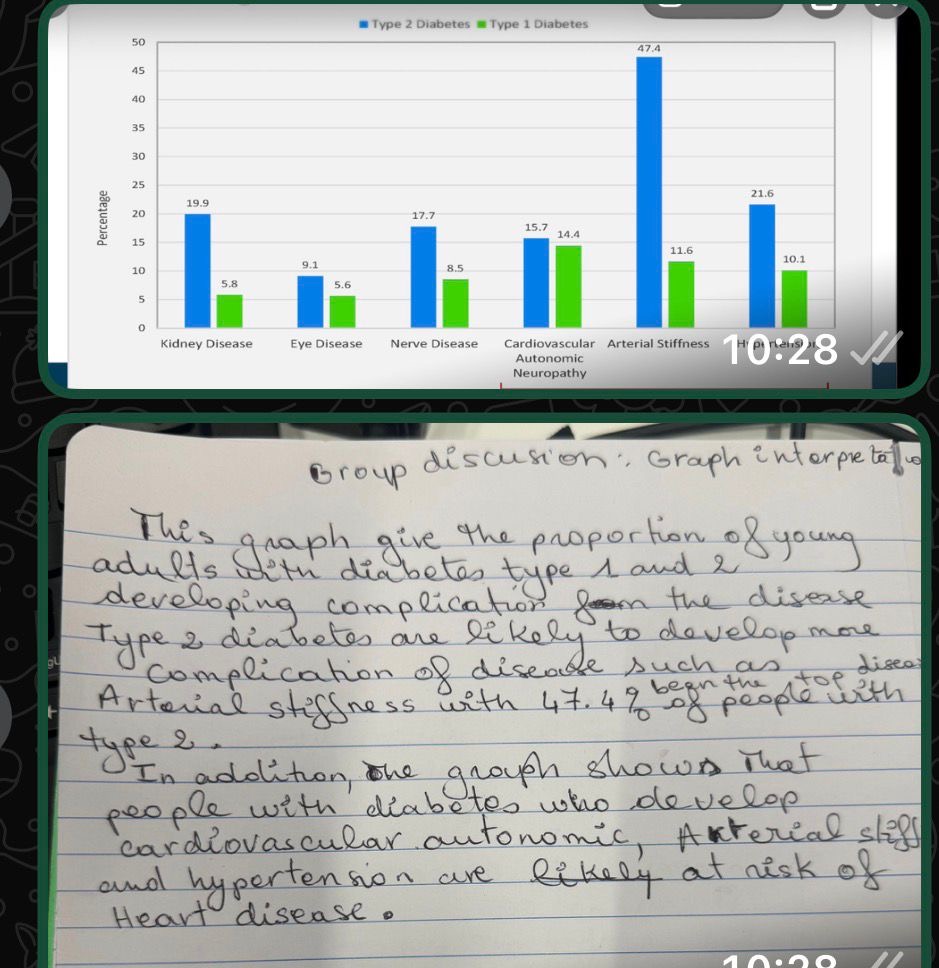 Type 2 Diabetes Type 1 Diabetes
50
45
40
35
30
25
20
15
10
5
0
Percentage
19.9
5.8
9.1
5.6
17.7
8.5
15.7
14.4
47.4
11.6
21.6
10.1
Kidney Disease Eye Disease Nerve Disease Cardiovascular Arterial Stiffness Hypertension
Autonomic
Neuropathy
10:28
Group discusion: Graph interpretatio
This graph give the proportion of young
adults with diabetes type 1 and 2
developing complication from the disease
Type 2 diabetes are likely to develop more
complication of disease such as
begn the top disea
Arterial stiffness with 47.4% of people with
type 2.
In addition, the graph shows That
people with diabetes who develop
cardiovascular autonomic, Arterial stiff
and hypertension are likely at risk of
Heart disease.
10:28